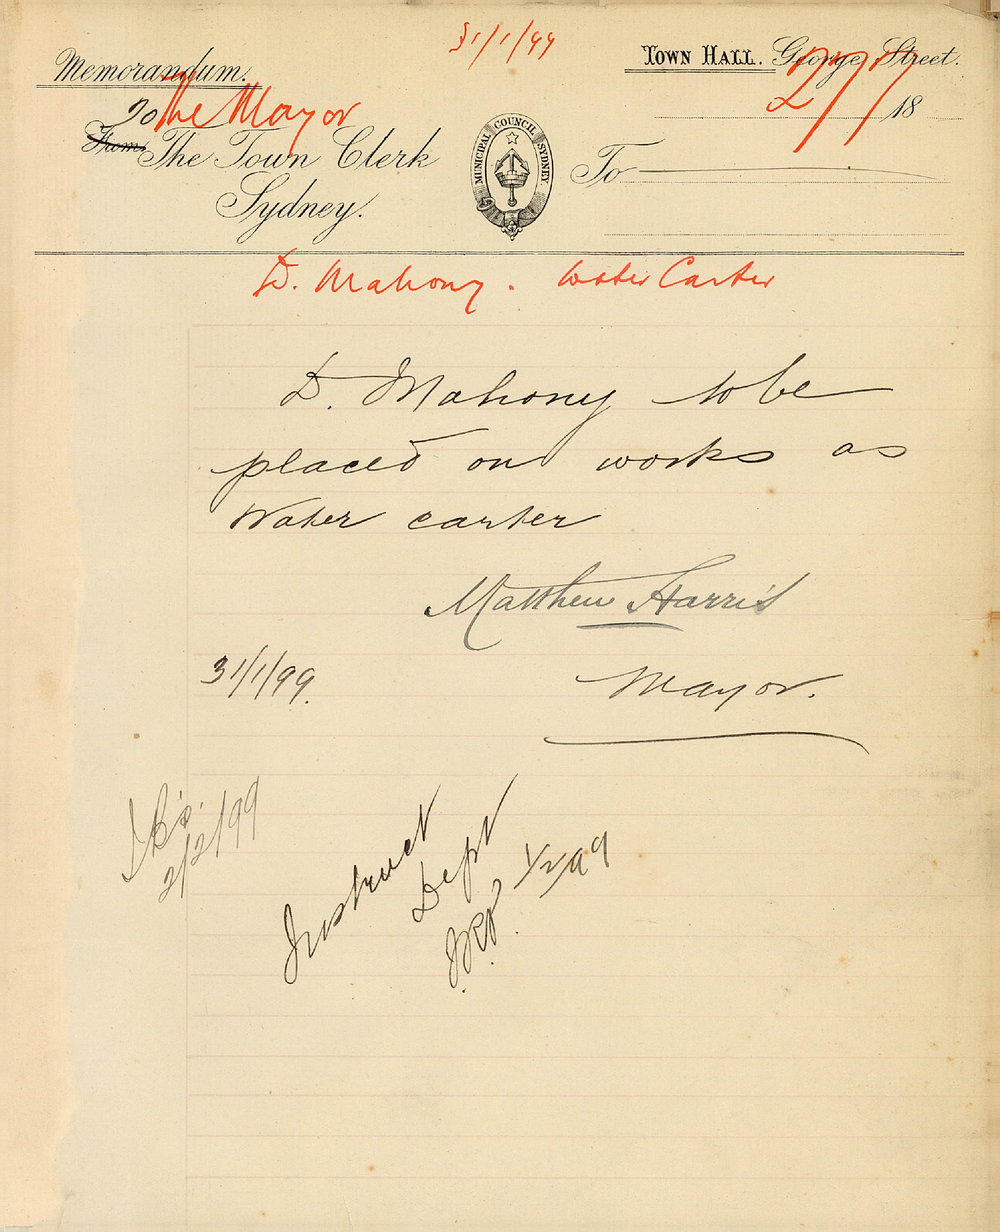 31/1/99
Memorandum.
TOWN HALL. George Street.
277
18
The Mayor
To
From
The Town Clerk
Sydney.
MUNICIPAL COUNCIL SYDNEY.
To
D. Mahony. Water Carter
D. Mahony to be
placed on works as
Water carter
Matthew Harris
31/1/99.
Mayor.
2/2/99
Instruct
Dept
1/2/99